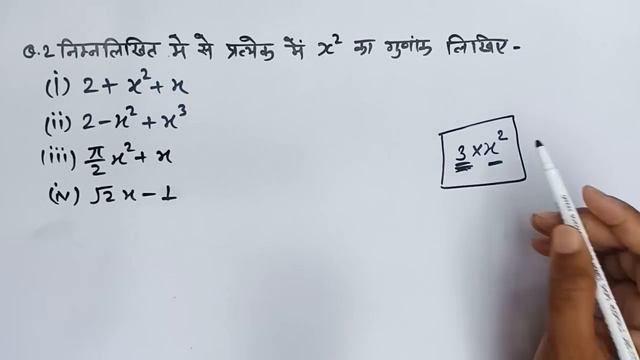 Q.2 निम्नलिखित मे से प्रत्येक में x² का गुणांक लिखिए -
(i) 2 + x² + x
(ii) 2 - x² + x³
(iii) π/2 x² + x
(iv) √2 x - 1
3 × x²